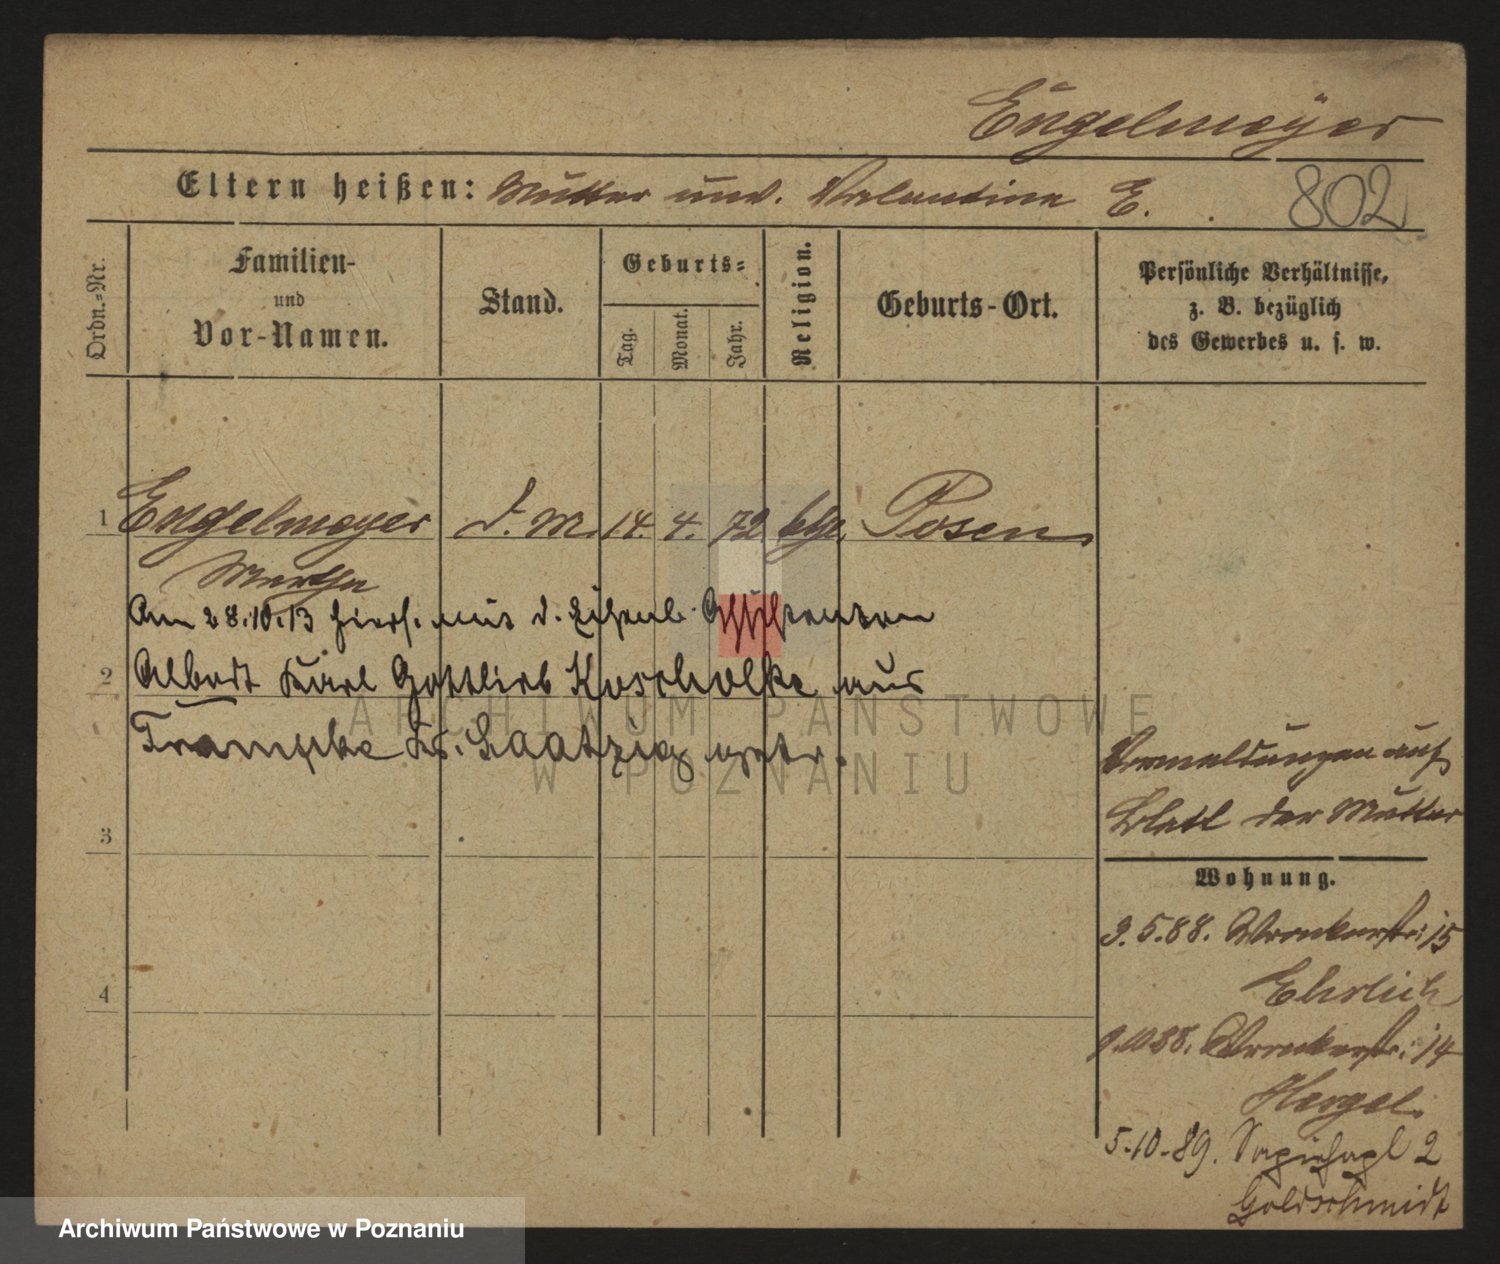 Engelmeyer
Eltern heißen: Mutter unv. Valentina E.
802
Ordn.=Nr.
Familien-
und
Vor-Namen.
Stand.
Geburts=
Tag.
Monat.
Jahr.
Religion.
Geburts-Ort.
Persönliche Verhältnisse,
z. B. bezüglich
des Gewerbes u. s. w.
1 Engelmeyer d. M. 14. 4. 72 Posen
Martha
Am 28.10.13 hiers. mit d. Eisenb.
2 Albert Karl Gottlieb Koscholke aus
Trampke Kr. Saatzig getr.
3
4
Vermeldungen auf
Blatt der Mutter
Wohnung.
3.5.88. Wronkerstr. 15
Ehrlich
9.10.88. Wronkerstr. 14
5.10.89. Sapiehapl 2
Goldschmidt
ARCHIWUM PAŃSTWOWE
W POZNANIU
Archiwum Państwowe w Poznaniu